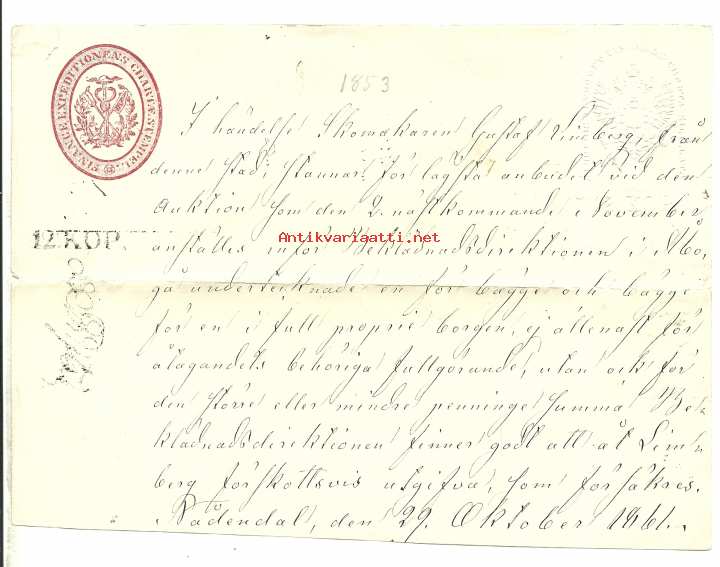 1853
FINANCE EXPEDITIONENS CHARTÆ STEMPEL.
12 KOP
Antikvariaatti.net
I händelse Skomakaren Gustaf Limberg, från
denne stad, stannar för lägsta anbudet vid den
Auktion som den 2. nästkommande November
anställes inför Beklädnadsdirektionen i Åbo,
gå undertecknade en för bägge och bägge
för en i full proprie borgen, ej allenast för
åtagandets behöriga fullgörande, utan ock för
den större eller mindre penninge summa Be-
klädnadsdirektionen finner godt att åt Lim-
berg förskottsvis utgifva, som försäkres.
Nådendal, den 29. Oktober 1861.